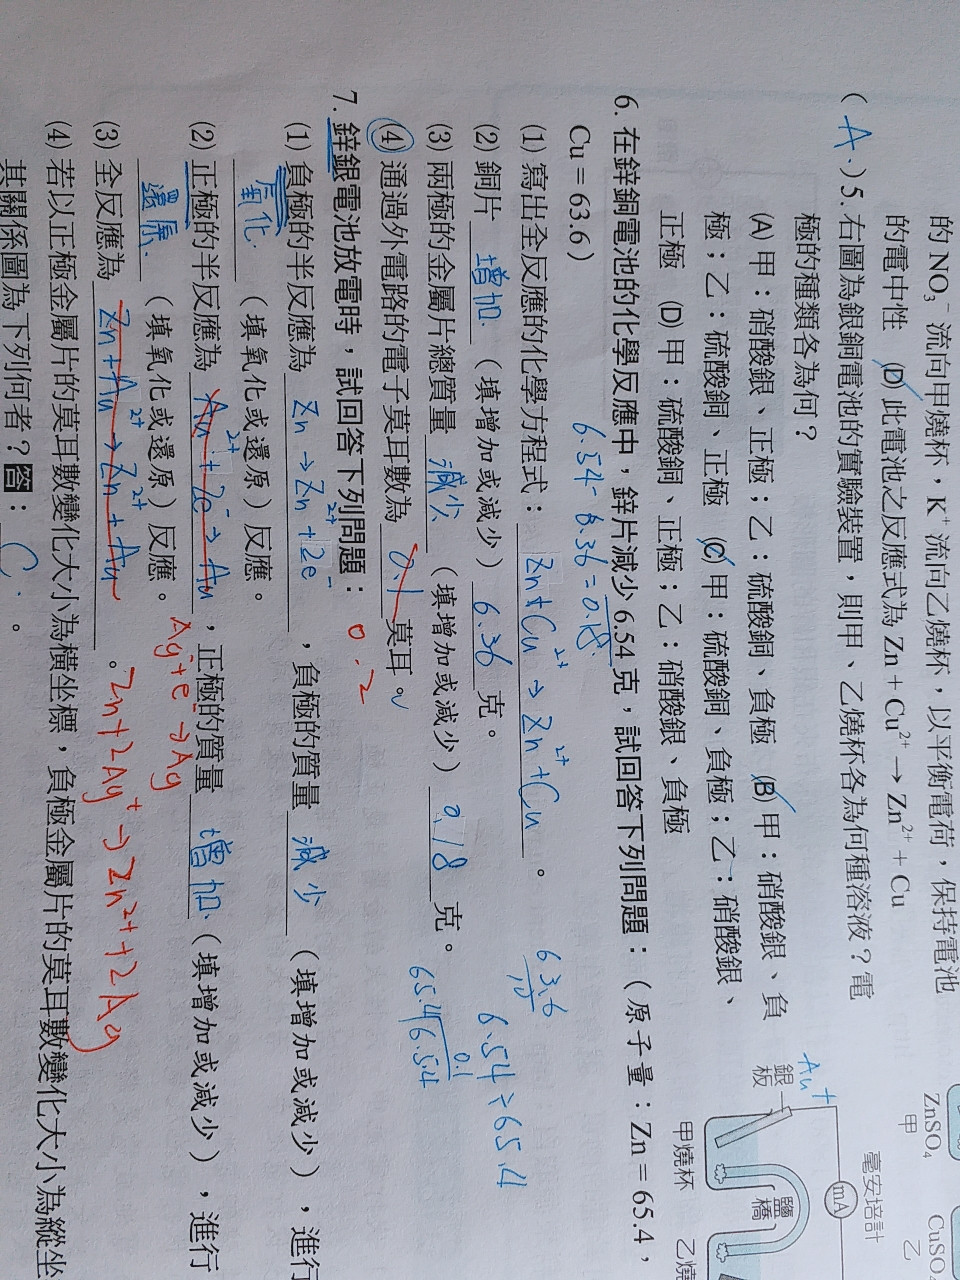 的 NO₃⁻ 流向甲燒杯，K⁺ 流向乙燒杯，以平衡電荷，保持電池
的電中性 (D) 此電池之反應式為 Zn + Cu²⁺ → Zn²⁺ + Cu
ZnSO₄
甲
CuSO
乙
( A. ) 5. 右圖為銀銅電池的實驗裝置，則甲、乙燒杯各為何種溶液？電
極的種類各為何？
(A) 甲：硝酸銀、正極；乙：硫酸銅、負極 (B) 甲：硝酸銀、負
極；乙：硫酸銅、正極 (C) 甲：硫酸銅、負極；乙：硝酸銀、
正極 (D) 甲：硫酸銅、正極；乙：硝酸銀、負極
毫安培計
mA
Au⁺
銀板
鹽橋
甲燒杯
乙燒
6. 在鋅銅電池的化學反應中，鋅片減少 6.54 克，試回答下列問題：（原子量：Zn = 65.4，
Cu = 63.6）
6.54 - 6.36 = 0.18.
(1) 寫出全反應的化學方程式： Zn + Cu²⁺ → Zn²⁺ + Cu 。
63.6
10
(2) 銅片 增加. （填增加或減少） 6.36 克。
6.54 ÷ 65.4
(3) 兩極的金屬片總質量 減少 （填增加或減少） 0.18 克。
0.1
65.4 6.54
(4) 通過外電路的電子莫耳數為 0.1 莫耳。
0.2
7. 鋅銀電池放電時，試回答下列問題：
(1) 負極的半反應為 Zn → Zn²⁺ + 2e⁻ ，負極的質量 減少 （填增加或減少），進行
氧化. （填氧化或還原）反應。
(2) 正極的半反應為 Au²⁺ + 2e⁻ → Au ，正極的質量 增加. （填增加或減少），進行
Ag⁺ + e⁻ → Ag
還原. （填氧化或還原）反應。
(3) 全反應為 Zn + Au²⁺ → Zn²⁺ + Au 。 Zn + 2Ag⁺ → Zn²⁺ + 2Ag
(4) 若以正極金屬片的莫耳數變化大小為橫坐標，負極金屬片的莫耳數變化大小為縱坐
其關係圖為下列何者？答： C. 。